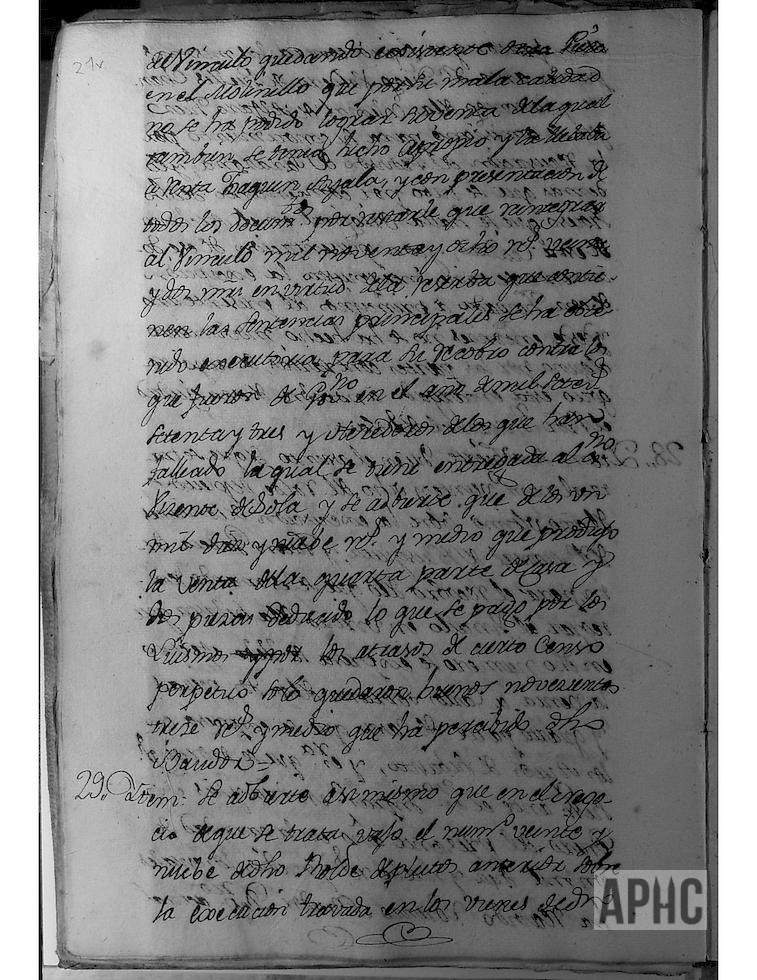 21v
de Vinculo quedando existente otra Pieza
en el Molinillo que por su mala calidad
no se ha podido tomar Reventa de la qual
tambien se tenia hecho Apropio y la
a Renta Joaquin Ayala, y con presentacion de
todos los docum.tos por restarle que reintegrar
al Vinculo mil noventa y ocho rs. veinte
y dos mrs en virtud de la reserba que contie-
nen las Sentencias principales se ha obte-
nido executoria para su recobro contra los
que fueron de Gov.no en el año de mil Setec.s
setenta y tres y erederos de los que han
falleado la qual se tiene entregada al
Vizente de Sola y se adbierte que de los un
mil y nuebe rs. y medio que produjo
la venta de la quarta parte de Casa y
dos piezas deducido lo que se pago por los
Luismos los atrasos de cierto Censo
perpetuo solo quedaron buenos novecientos
treze rs. y medio que ha percibido dho
29. Ytem: Se adbierte asimismo que en el nego-
cio de que se trata vajo el num.o veinte y
nuebe de dho Rolde de pleitos anterior sobre
la execucion travada en los vienes de Dn
APHC